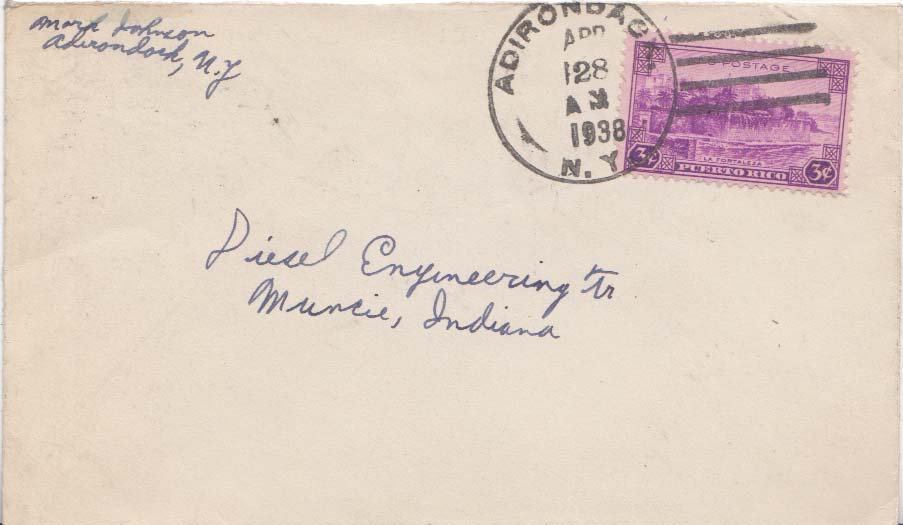 Johnson
Adirondack, N.Y
ADIRONDACK
APR
28
A M
1938
N. Y.
U S POSTAGE
LA FORTALEZA
3¢ PUERTO RICO 3¢
Diesel Engineering Tr
Muncie, Indiana